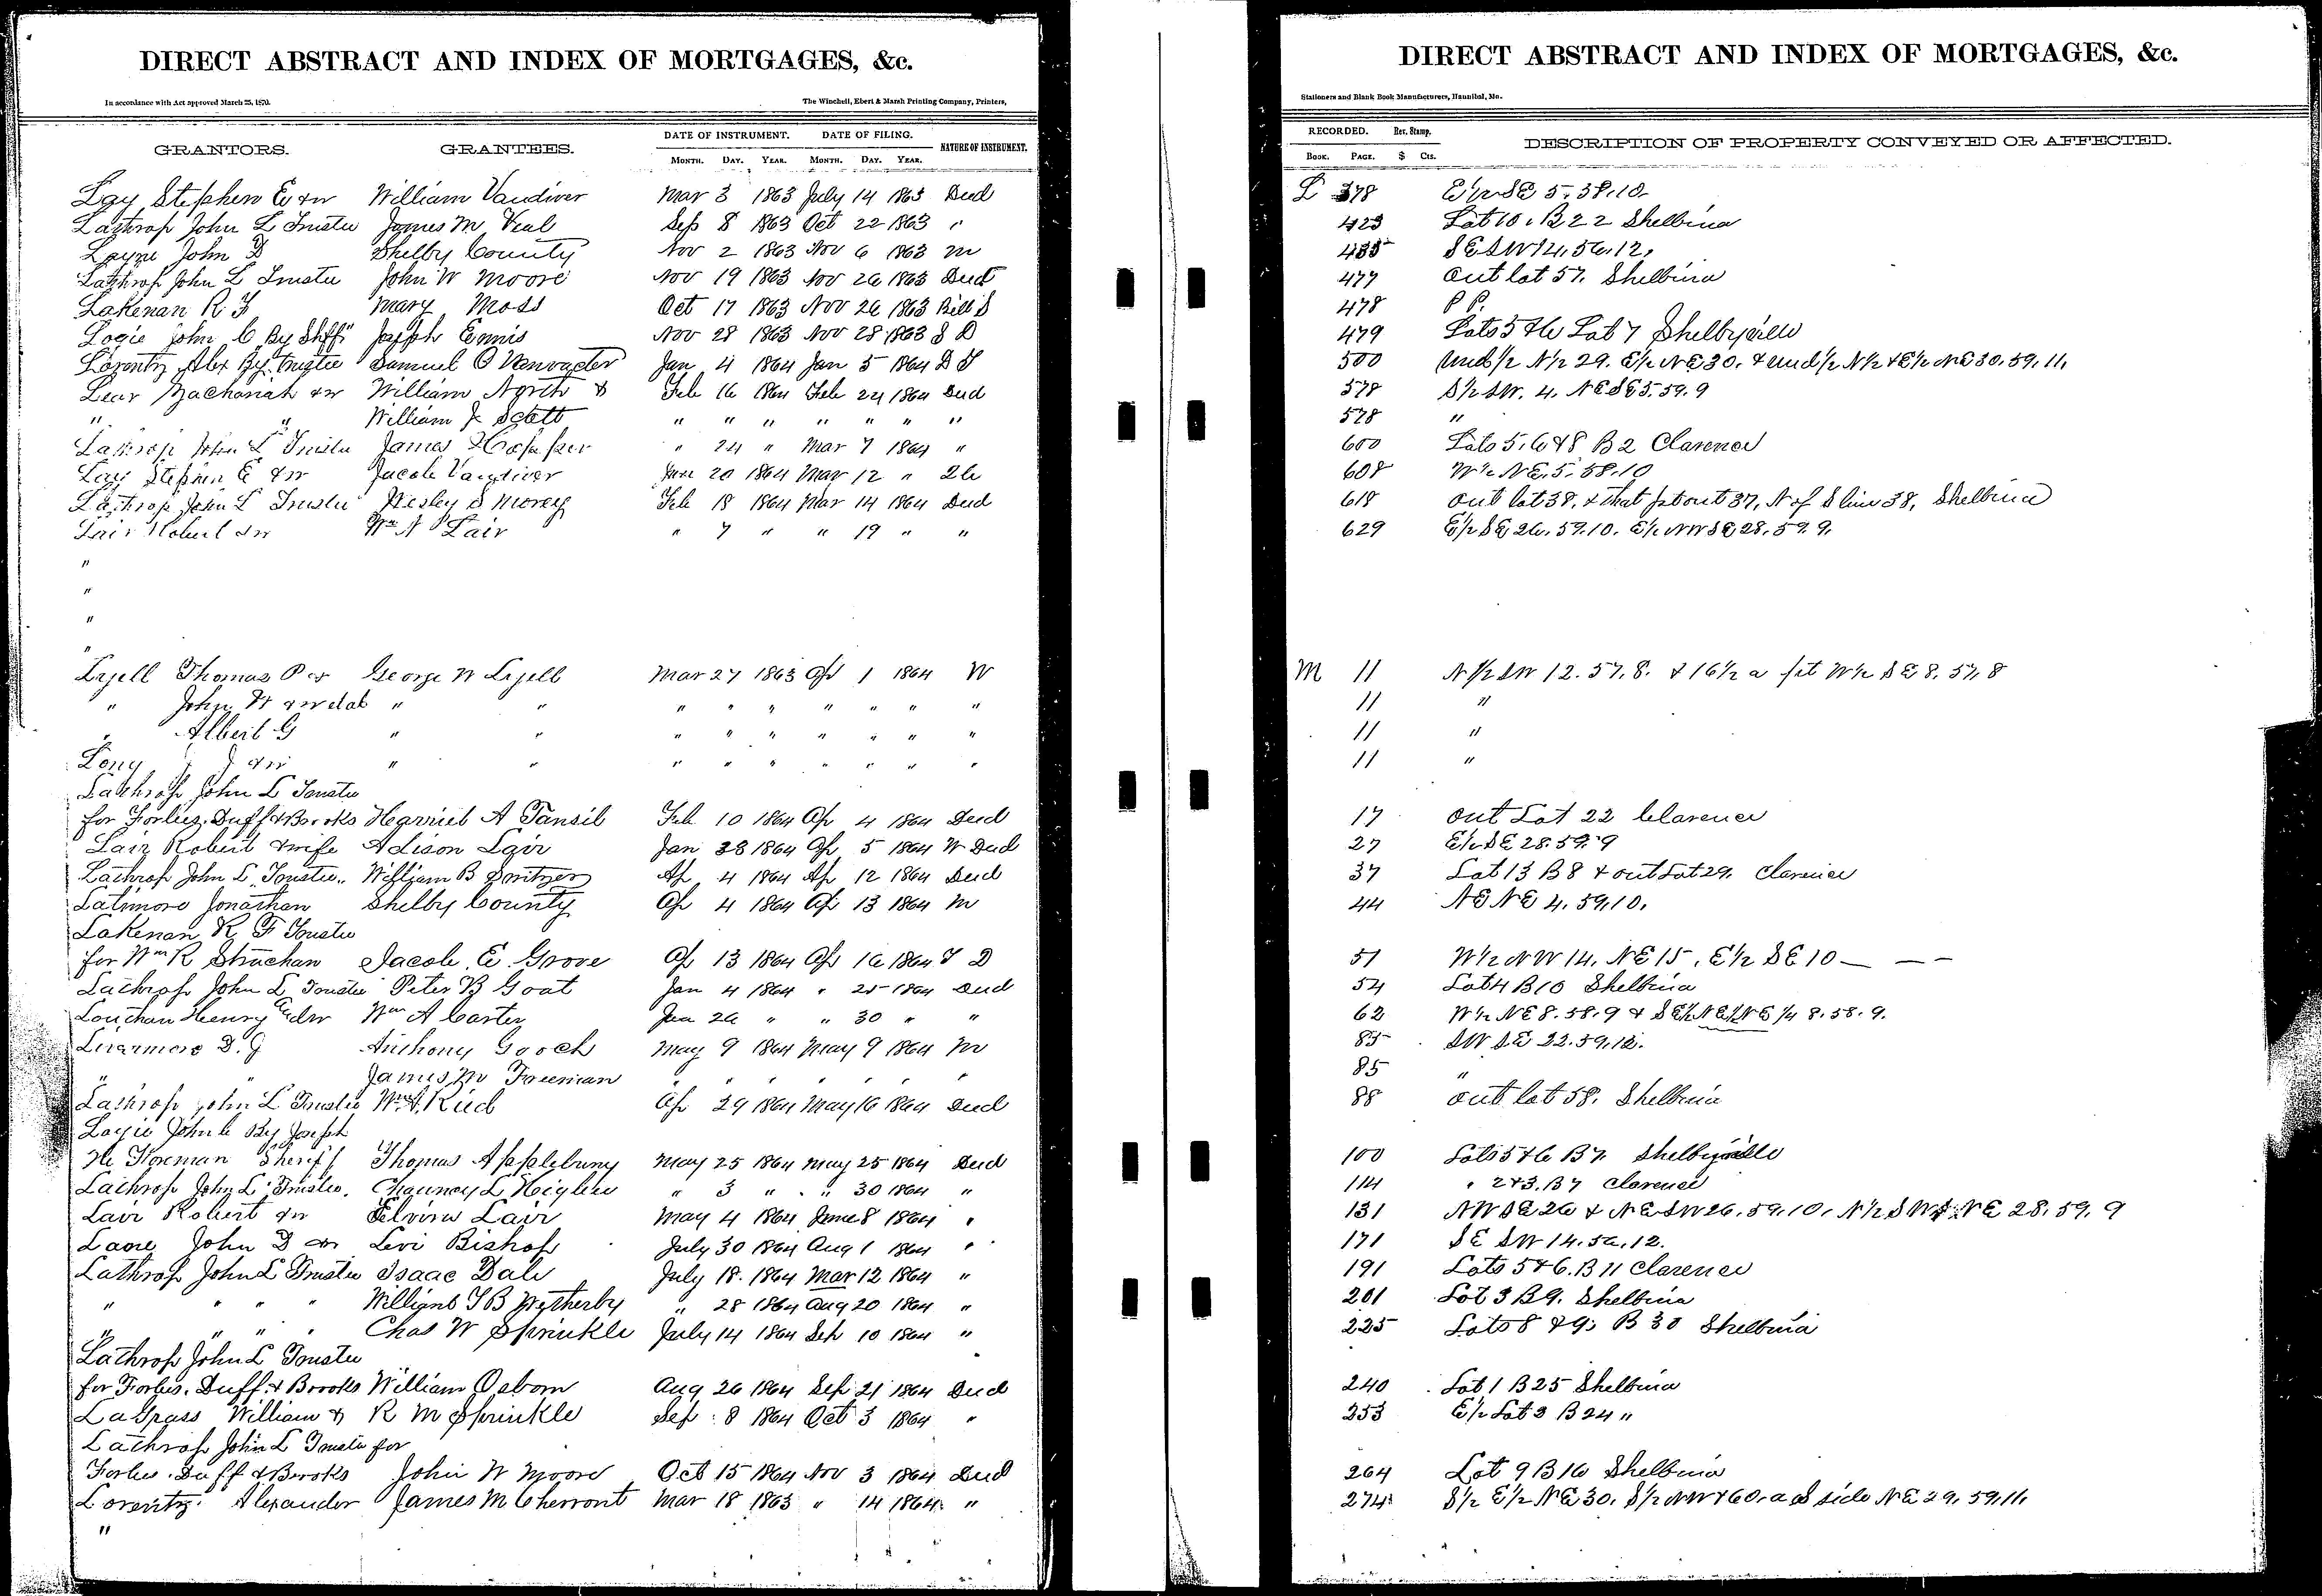 DIRECT ABSTRACT AND INDEX OF MORTGAGES, &c.
In accordance with Act approved March 25, 1870.
The Winchell, Ebert & Marsh Printing Company, Printers,
GRANTORS. GRANTEES. DATE OF INSTRUMENT. DATE OF FILING. NATURE OF INSTRUMENT.
MONTH. DAY. YEAR. MONTH. DAY. YEAR.
Lay Stephen E & w William Vandiver Mar 3 1863 July 14 1863 Deed
Lathrop John L Trustee James M Veal Sep 8 1863 Oct 22 1863 "
Layne John D Shelby County Nov 2 1863 Nov 6 1863 M
Lathrop John L Trustee John W Moore Nov 19 1863 Nov 26 1863 Deed
Lakenan R F Mary Moss Oct 17 1863 Nov 26 1863 Bill S
Logie John C By Shff Joseph Ennis Nov 28 1863 Nov 28 1863 S D
Lorentz Alex By Trustee Samuel O Vanvacter Jan 4 1864 Jan 5 1864 D T
Lear Zachariah & w William North & Feb 16 1864 Feb 24 1864 Deed
" " William J Scott " " " " " " "
Lathrop John L Trustee James Hooper " 24 " Mar 7 1864 "
Lay Stephen E & w Jacob Vandiver Jan 20 1864 Mar 12 "
Lathrop John L Trustee Wesley S Morey Feb 18 1864 Mar 14 1864 Deed
Lair Robert & w Wm A Lair " 7 " " 19 " "
"
"
"
"
Lyell Thomas P & w George W Lyell Mar 27 1863 Ap 1 1864 W
" John H & w et al " " " " " " " " "
" Albert G " " " " " " " " "
Long J J & w " " " " " " " " "
Lathrop John L Trustee
for Forbes, Duff & Brooks Harriet A Tansil Feb 10 1864 Ap 4 1864 Deed
Lair Robert & wife Adison Lair Jan 28 1864 Ap 5 1864 W Deed
Lathrop John L Trustee William B Switzer Ap 4 1864 Ap 12 1864 Deed
Latimore Jonathan Shelby County Ap 4 1864 Ap 13 1864 M
Lakenan R F Trustee
for Wm R Strachan Jacob E Grove Ap 13 1864 Ap 16 1864 T D
Lathrop John L Trustee Peter B Goat Jan 4 1864 " 25 1864 Deed
Louthan Henry E & w Wm A Carter Jan 26 " " 30 " "
Livermore D. G Anthony Gooch May 9 1864 May 9 1864 M
" " James M Freeman " " " " "
Lathrop John L Trustee Wm A. Reed Ap 29 1864 May 16 1864 Deed
Logie John C By Joseph
H Foreman Sheriff Thomas Applebury May 25 1864 May 25 1864 Deed
Lathrop John L Trustee. Chauncy L Higbee " 3 " " 30 1864 "
Lair Robert & w Elvira Lair May 4 1864 June 8 1864 "
Laore John D & w Levi Bishop July 30 1864 Aug 1 1864 "
Lathrop John L Trustee Isaac Dale July 18. 1864 Mar 12 1864 "
" " " " William T B Wetherby " 28 1864 Aug 20 1864 "
" " " " Chas W Sprinkle July 14 1864 Sep 10 1864 "
Lathrop John L Trustee
for Forbes, Duff & Brooks William Osborn Aug 26 1864 Sep 21 1864 Deed
LaGrass William & R M Sprinkle Sep 8 1864 Oct 3 1864 "
Lathrop John L Trustee for
Forbes Duff & Brooks John W Moore Oct 15 1864 Nov 3 1864 Deed
Lorentz. Alexander James M Cherront Mar 18 1863 " 14 1864 "
"
DIRECT ABSTRACT AND INDEX OF MORTGAGES, &c.
Stationers and Blank Book Manufacturers, Hannibal, Mo.
RECORDED. Rev. Stamp. DESCRIPTION OF PROPERTY CONVEYED OR AFFECTED.
BOOK. PAGE. $ Cts.
L 378 E½ SE 5. 58. 10.
423 Lot 10. B 22 Shelbina
435 SE SW 14. 56. 12.
477 Out lot 57. Shelbina
478 P P.
479 Lots 5 & 6 Lot 7 Shelbyville
500 Und ½ N½ 29. E½ NE 30. & und ½ N½ & E½ NE 30. 59. 11.
578 S½ SW. 4. NE SE 5. 59. 9
578 "
600 Lots 5, 6 & 8 B 2 Clarence
608 W½ NE. 5. 58. 10
618 Out lot 38. & that pt out 37, N of S line 38, Shelbina
629 E½ SE 26. 59. 10. E½ NW SE 28. 59. 9.
M 11 N½ SW 12. 57. 8. & 16½ a pt W½ SE 8. 57. 8
11 "
11 "
11 "
17 Out Lot 22 Clarence
27 E½ SE 28. 59. 9
37 Lot 13 B 8 & out Lot 29. Clarence
44 NE NE 4. 59. 10.
51 W½ NW 14. NE 15. E½ SE 10 — — —
54 Lot 4 B 10 Shelbina
62 W½ NE 8. 58. 9 & SE½ NE ¼ 8. 58. 9.
85 SW SE 22. 59. 12.
85 "
88 Out lot 58. Shelbina
100 Lots 5 & 6 B 7. Shelbyville
114 " 2 & 3. B 7 Clarence
131 NW SE 26 & NE SW 26. 59. 10. N½ SW & NE 28. 59. 9
171 SE SW 14. 56. 12.
191 Lots 5 & 6. B 11 Clarence
201 Lot 3 B 9. Shelbina
225 Lots 8 & 9. B 30 Shelbina
240 Lot 1 B 25 Shelbina
253 E½ Lot 3 B 24 "
264 Lot 9 B 16 Shelbina
274 S½ E½ NE 30. S½ NW & 60. a S side NE 29. 59. 11.